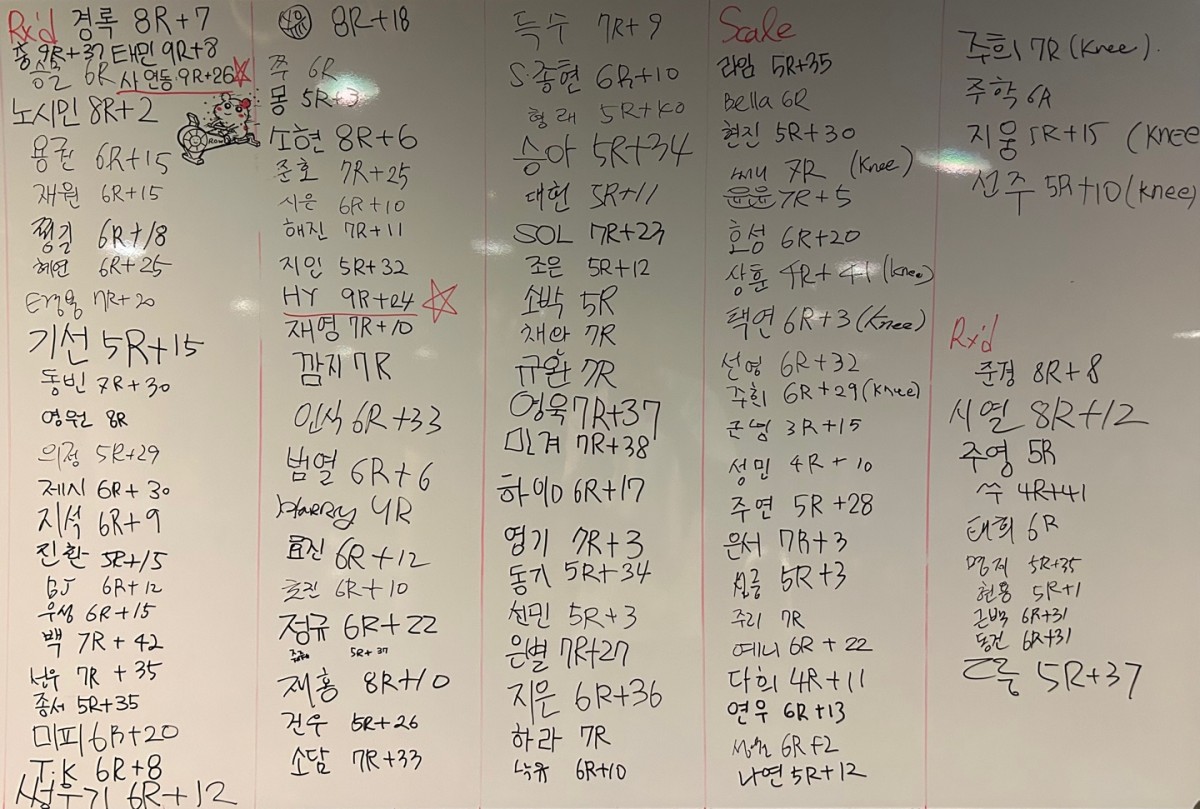 Rx'd 경록 8R+7
홍 9R+37 태민 9R+8
승길 6R 사 연동 9R+26
노시민 8R+2
용권 6R+15
재원 6R+15
쩡길 6R+18
혜연 6R+25
7R+20
기선 5R+15
동빈 7R+30
영원 8R
의정 5R+29
제시 6R+30
지석 6R+9
진환 5R+15
BJ 6R+12
우성 6R+15
백 7R+42
선우 7R+35
종서 5R+35
미피 6R+20
T.K 6R+8
썽우기 6R+12
8R+18
쭈 6R
몽 5R+3
소현 8R+6
준호 7R+25
시은 6R+10
해진 7R+11
지인 5R+32
HY 9R+24
재영 7R+10
깜지 7R
인식 6R+33
범열 6R+6
Harry 4R
효진 6R+12
6R+10
정규 6R+22
5R+37
재홍 8R+10
건우 5R+26
소담 7R+33
득수 7R+9
S.종현 6R+10
형래 5R+40
승아 5R+34
대헌 5R+11
SOL 7R+23
조은 5R+12
소박 5R
채완 7R
규완 7R
영욱 7R+37
민겨 7R+38
하이D 6R+17
영기 7R+3
동기 5R+34
선민 5R+3
은별 7R+27
지은 6R+36
하라 7R
6R+10
Scale
라임 5R+35
Bella 6R
현진 5R+30
써니 7R (Knee)
윤윤 7R+5
효성 6R+20
상훈 4R+41 (Knee)
택연 6R+3 (Knee)
선영 6R+32
주희 6R+29 (Knee)
군영 3R+15
성민 4R+10
주연 5R+28
은서 7R+3
5R+3
주리 7R
예니 6R+22
다희 4R+11
연우 6R+13
6R+2
나연 5R+12
주희 7R (Knee).
주학 6R
지웅 5R+15 (Knee
선주 5R+10 (Knee)
Rx'd
준경 8R+8
시열 8R+12
주영 5R
쑤 4R+41
태희 6R
명제 5R+35
현용 5R+1
근백 6R+31
동건 6R+31
5R+37